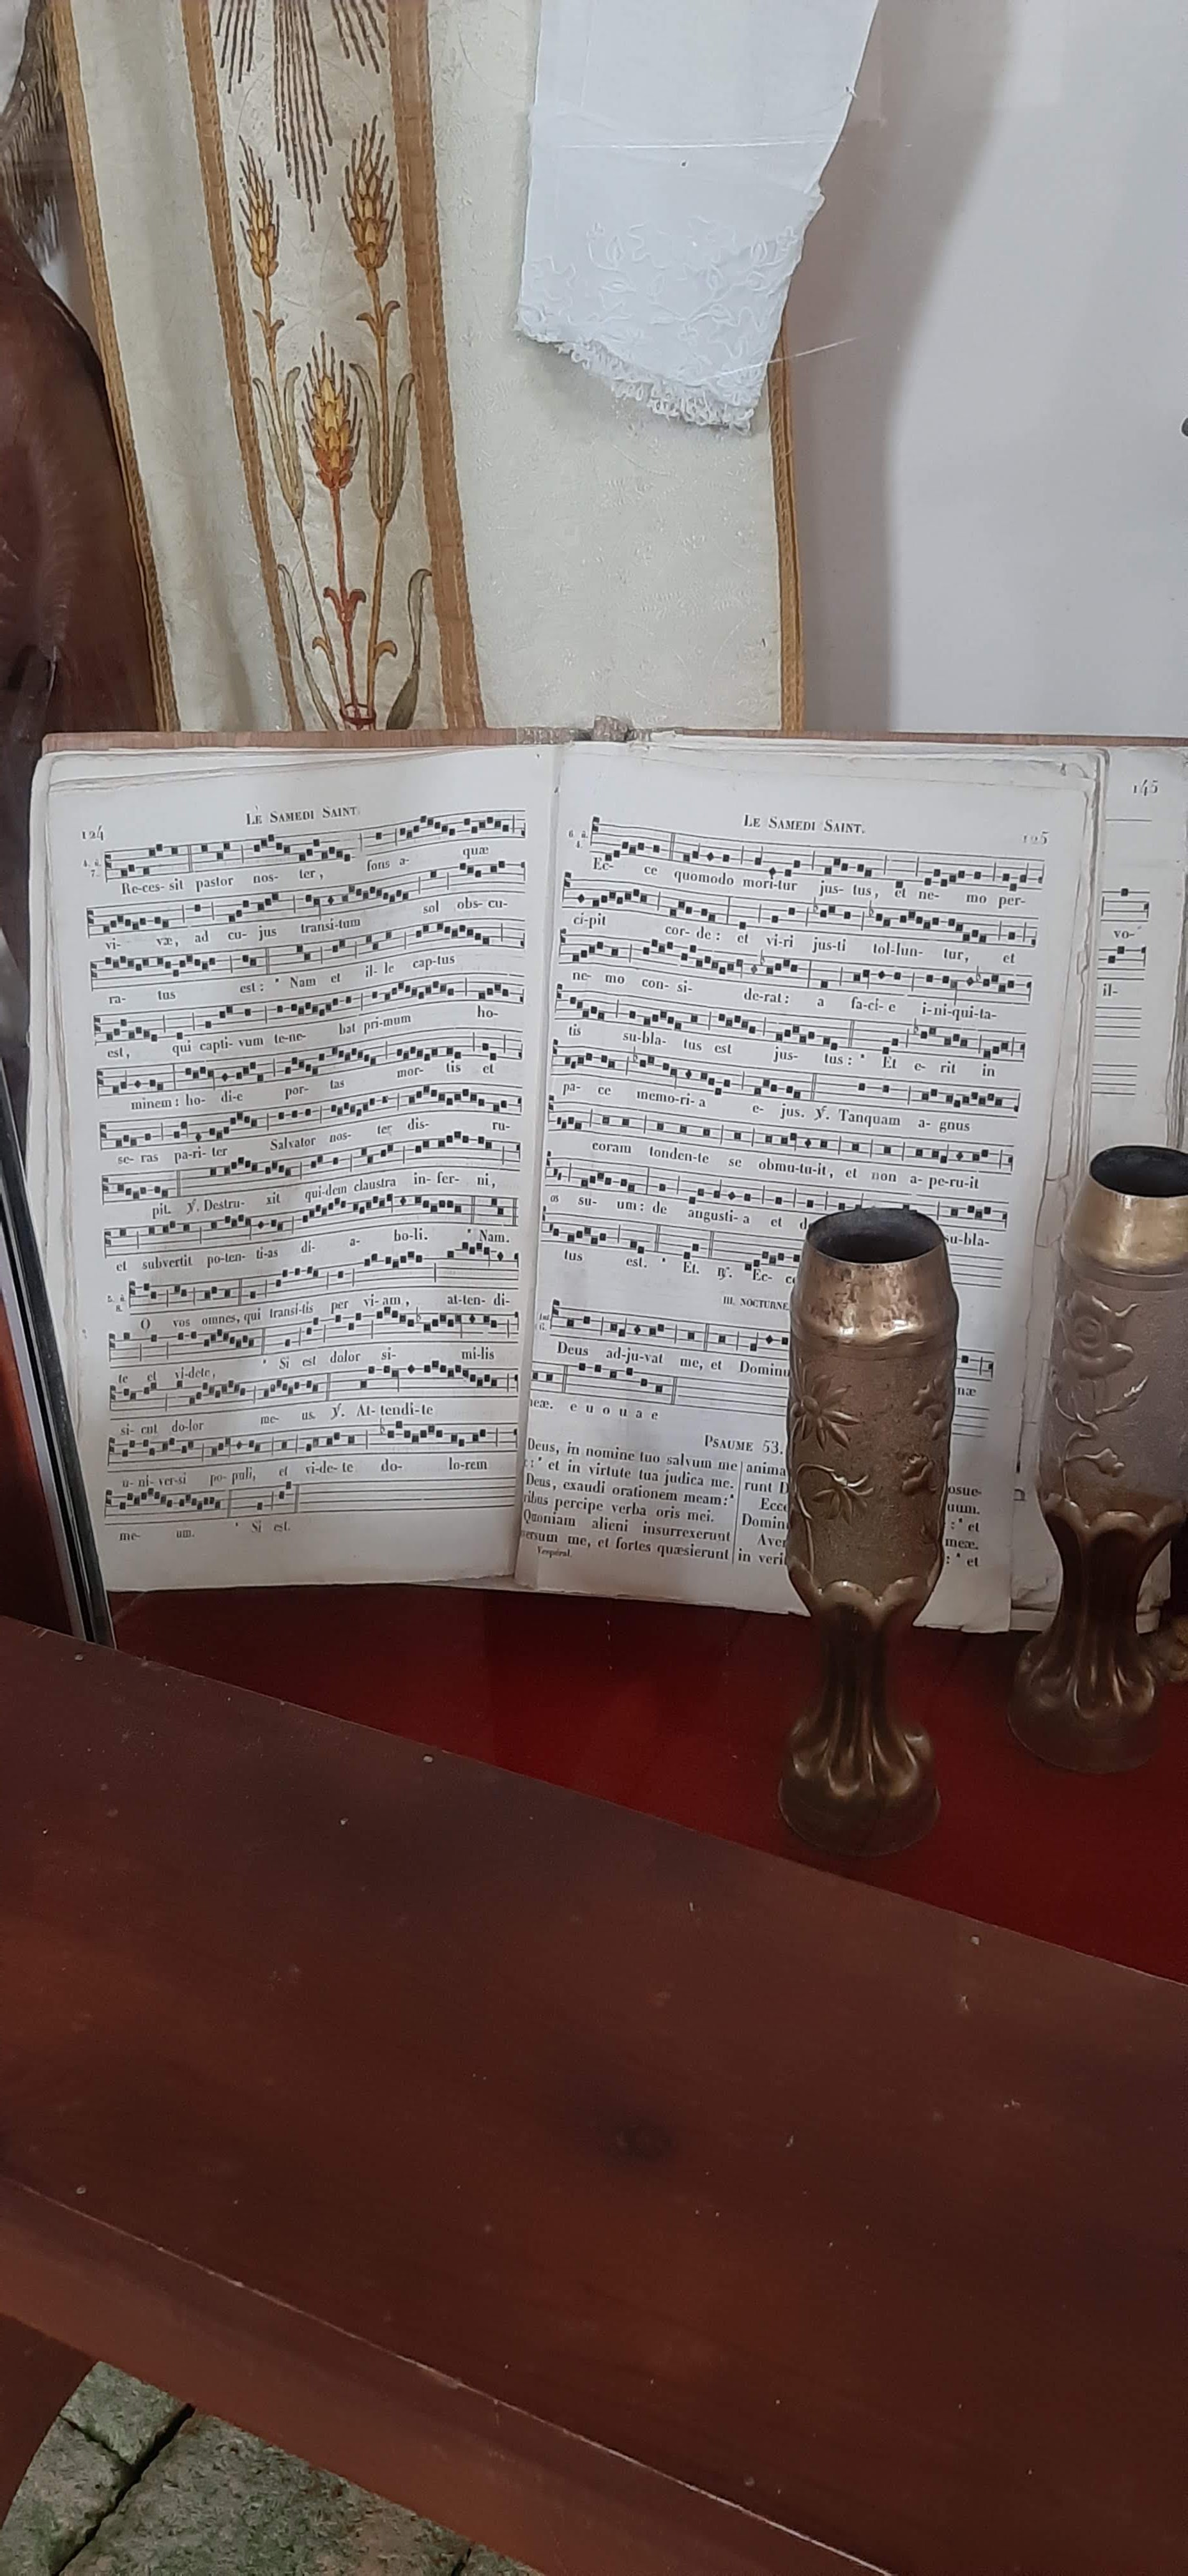 124
LE SAMEDI SAINT.
4. à
7.
Re-ces- sit pastor nos- ter, fons a- quæ
vi- væ, ad cu- jus transi-tum sol obs- cu-
ra- tus est : * Nam et il- le cap-tus
est, qui capti- vum te-ne- bat pri-mum ho-
minem : ho- di-e por- tas mor- tis et
se- ras pa-ri- ter Salvator nos- ter dis- ru-
pit. ℣. Destru- xit qui-dem claustra in- fer- ni,
et subvertit po-ten- ti-as di- a- bo-li. * Nam.
5. à
8.
O vos omnes, qui transi-tis per vi- am, at-ten- di-
te et vi-dete, * Si est dolor si- mi-lis
si- cut do-lor me- us. ℣. At- tendi-te
u- ni- ver-si po- puli, et vi-de- te do- lo-rem
me- um. * Si est.
LE SAMEDI SAINT.
125
6. à
4.
Ec- ce quomodo mori-tur jus- tus, et ne- mo per-
ci-pit cor- de : et vi-ri jus-ti tol-lun- tur, et
ne- mo con- si- de-rat : a fa-ci- e i-ni-qui-ta-
tis su-bla- tus est jus- tus : * Et e- rit in
pa- ce memo-ri- a e- jus. ℣. Tanquam a- gnus
coram tonden-te se obmu-tu-it, et non a- pe-ru-it
os su- um : de angusti- a et d su-bla-
tus est. * Et. ℟. Ec- c
III. NOCTURNE
Deus ad-ju-vat me, et Dominu næ
eæ. e u o u a e
PSAUME 53.
Deus, in nomine tuo salvum me anima osue-
: * et in virtute tua judica me. runt D uum.
Deus, exaudi orationem meam : * Ecce : * et
ribus percipe verba oris mei. Domin meæ.
Quoniam alieni insurrexerunt Aver : * et
ersum me, et fortes quæsierunt in veri
Vespéral.
145
vo-
il-